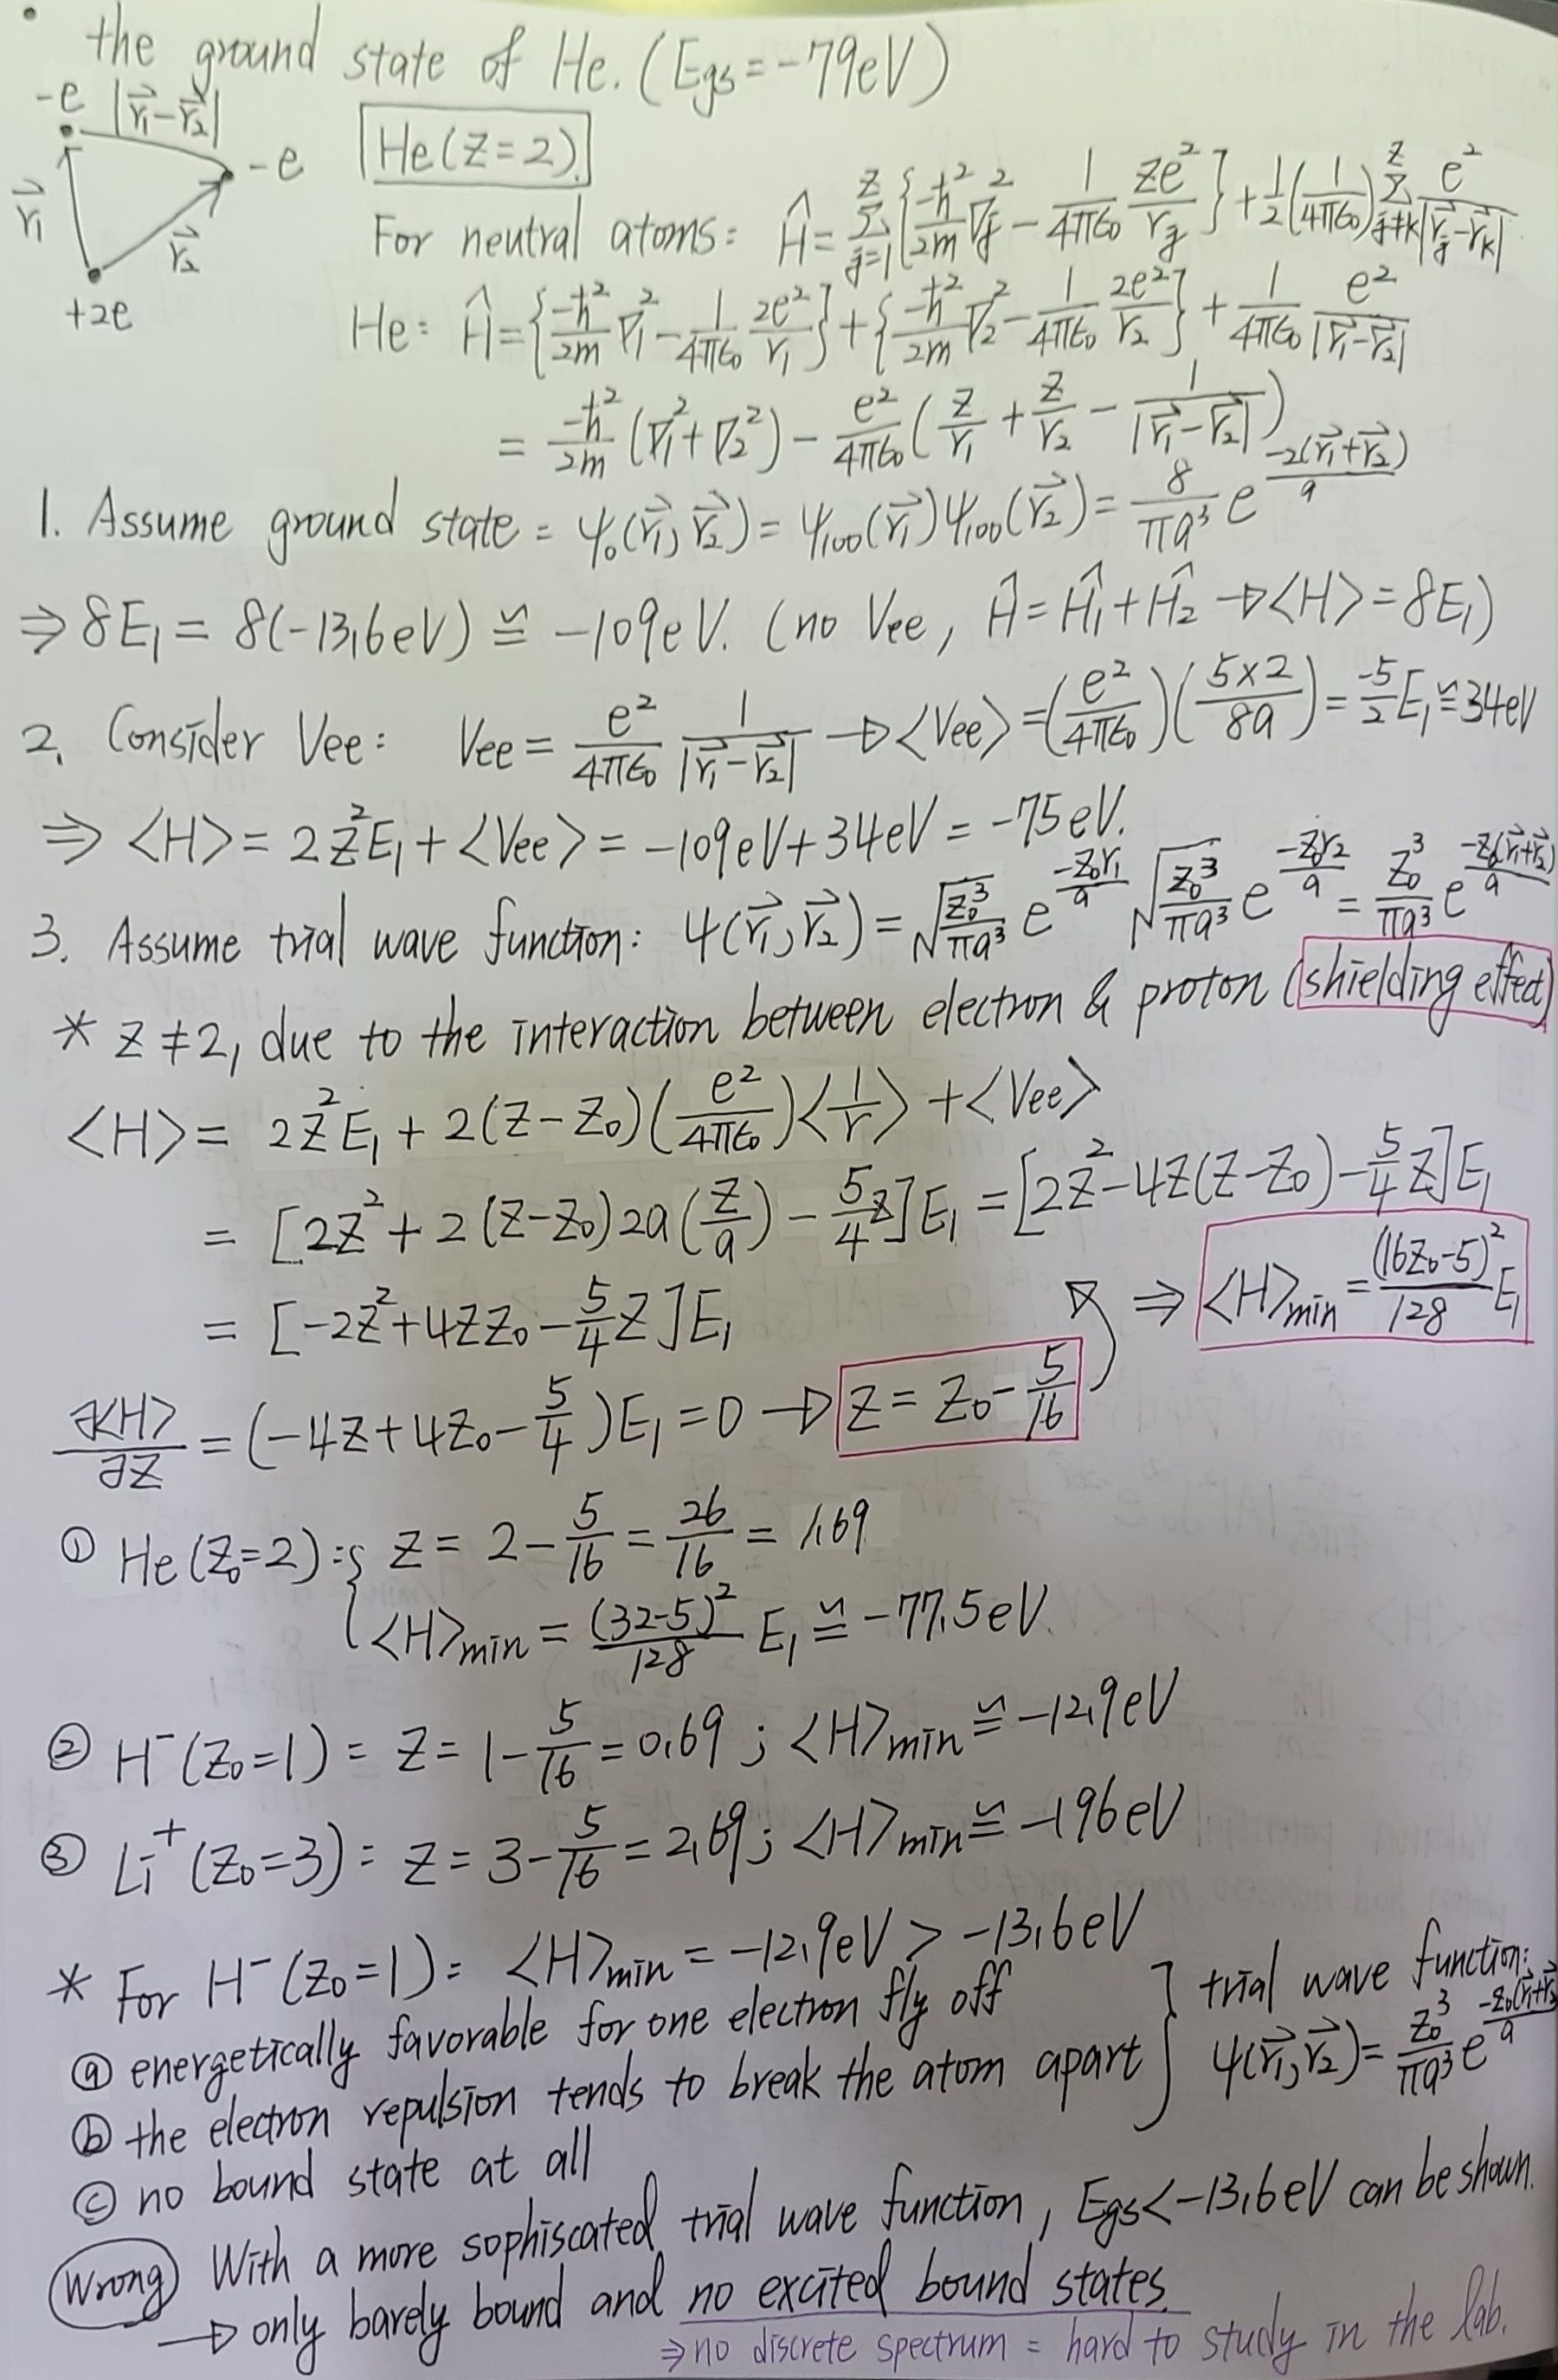 • the ground state of He. (Egs = -79eV)
-e |r⃗₁-r⃗₂| -e r⃗₁ r⃗₂ +2e
He (Z=2).
For neutral atoms: Ĥ = Σ_{j=1}^{Z} {-ħ²/2m ∇ⱼ² - 1/4πε₀ Ze²/rⱼ} + 1/2 (1/4πε₀) Σ_{j≠k}^{Z} e²/|r⃗ⱼ-r⃗ₖ|
He: Ĥ = {-ħ²/2m ∇₁² - 1/4πε₀ 2e²/r₁} + {-ħ²/2m ∇₂² - 1/4πε₀ 2e²/r₂} + 1/4πε₀ e²/|r⃗₁-r⃗₂|
= -ħ²/2m (∇₁²+∇₂²) - e²/4πε₀ (Z/r₁ + Z/r₂ - 1/|r⃗₁-r⃗₂|)
1. Assume ground state = ψ₀(r⃗₁,r⃗₂) = ψ₁₀₀(r⃗₁)ψ₁₀₀(r⃗₂) = 8/πa³ e^{-2(r⃗₁+r⃗₂)/a}
⇒ 8E₁ = 8(-13.6eV) ≅ -109eV. (no Vee, Ĥ = Ĥ₁+Ĥ₂ → <H> = 8E₁)
2. Consider Vee: Vee = e²/4πε₀ 1/|r⃗₁-r⃗₂| → <Vee> = (e²/4πε₀)(5×2/8a) = -5/2 E₁ ≅ 34eV
⇒ <H> = 2Z²E₁ + <Vee> = -109eV + 34eV = -75eV.
3. Assume trial wave function: ψ(r⃗₁,r⃗₂) = √(Z₀³/πa³) e^{-Z₀r₁/a} √(Z₀³/πa³) e^{-Z₀r₂/a} = Z₀³/πa³ e^{-Z₀(r⃗₁+r⃗₂)/a}
* Z≠2, due to the interaction between electron & proton (shielding effect)
<H> = 2Z²E₁ + 2(Z-Z₀)(e²/4πε₀)<1/r> + <Vee>
= [2Z² + 2(Z-Z₀)2a(Z/a) - 5/4 Z]E₁ = [2Z² - 4Z(Z-Z₀) - 5/4 Z]E₁
= [-2Z² + 4ZZ₀ - 5/4 Z]E₁ ⇒ <H>min = (16Z₀-5)²/128 E₁
∂<H>/∂Z = (-4Z + 4Z₀ - 5/4)E₁ = 0 → Z = Z₀ - 5/16
① He (Z₀=2): { Z = 2 - 5/16 = 26/16 = 1.69
<H>min = (32-5)²/128 E₁ ≅ -77.5eV.
② H⁻ (Z₀=1) = Z = 1 - 5/16 = 0.69 ; <H>min ≅ -12.9eV
③ Li⁺ (Z₀=3) = Z = 3 - 5/16 = 2.69 ; <H>min ≅ -196eV
* For H⁻ (Z₀=1) = <H>min = -12.9eV > -13.6eV
ⓐ energetically favorable for one electron fly off
ⓑ the electron repulsion tends to break the atom apart
} trial wave function:
ψ(r⃗₁,r⃗₂) = Z₀³/πa³ e^{-Z₀(r⃗₁+r⃗₂)/a}
ⓒ no bound state at all
Wrong With a more sophiscated trial wave function, Egs < -13.6eV can be shown.
→ only barely bound and no excited bound states.
⇒ no discrete spectrum = hard to study in the lab.